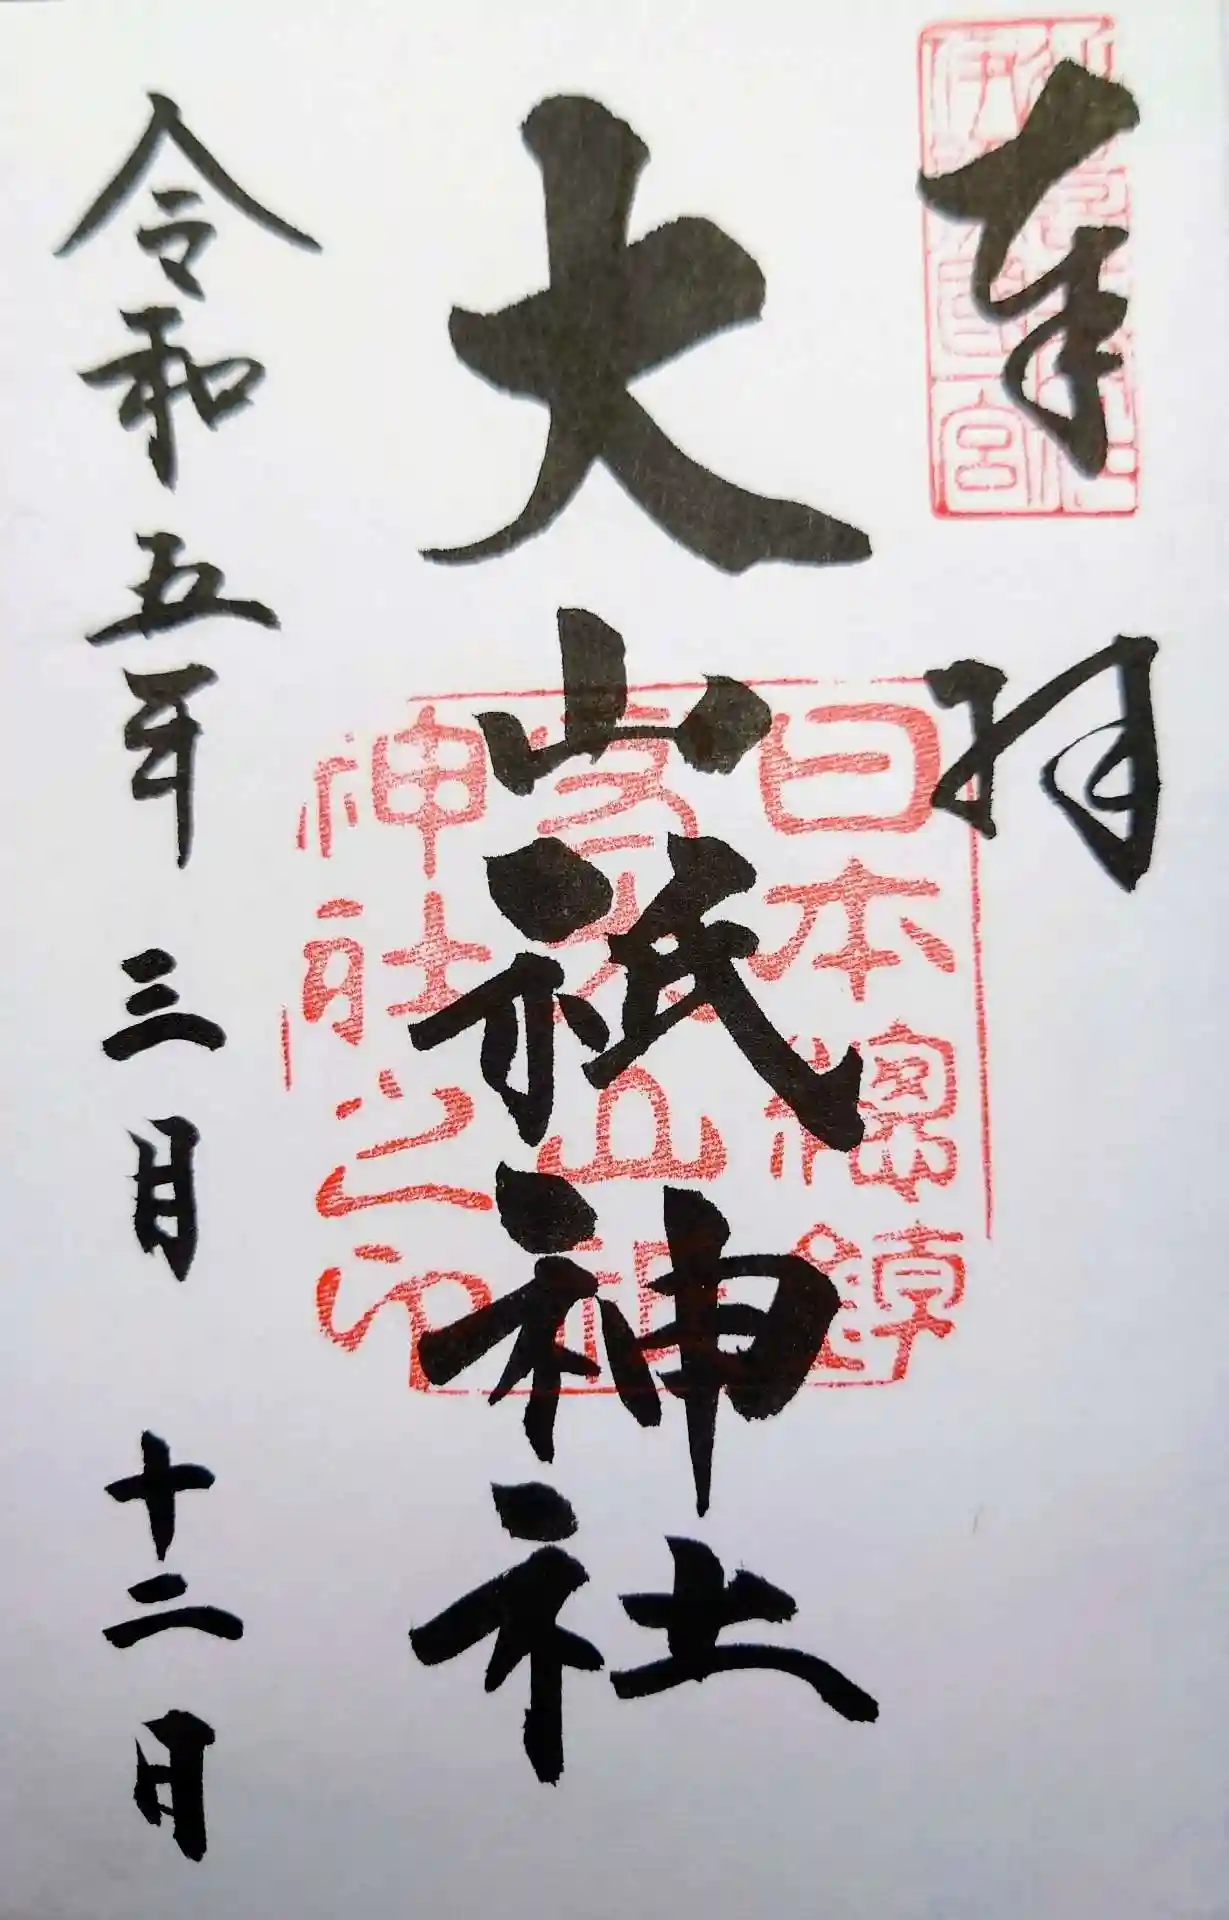 奉拝
大山祇神社
日本總鎮
守大山祇
神社之印
令和五年 三月 十二日